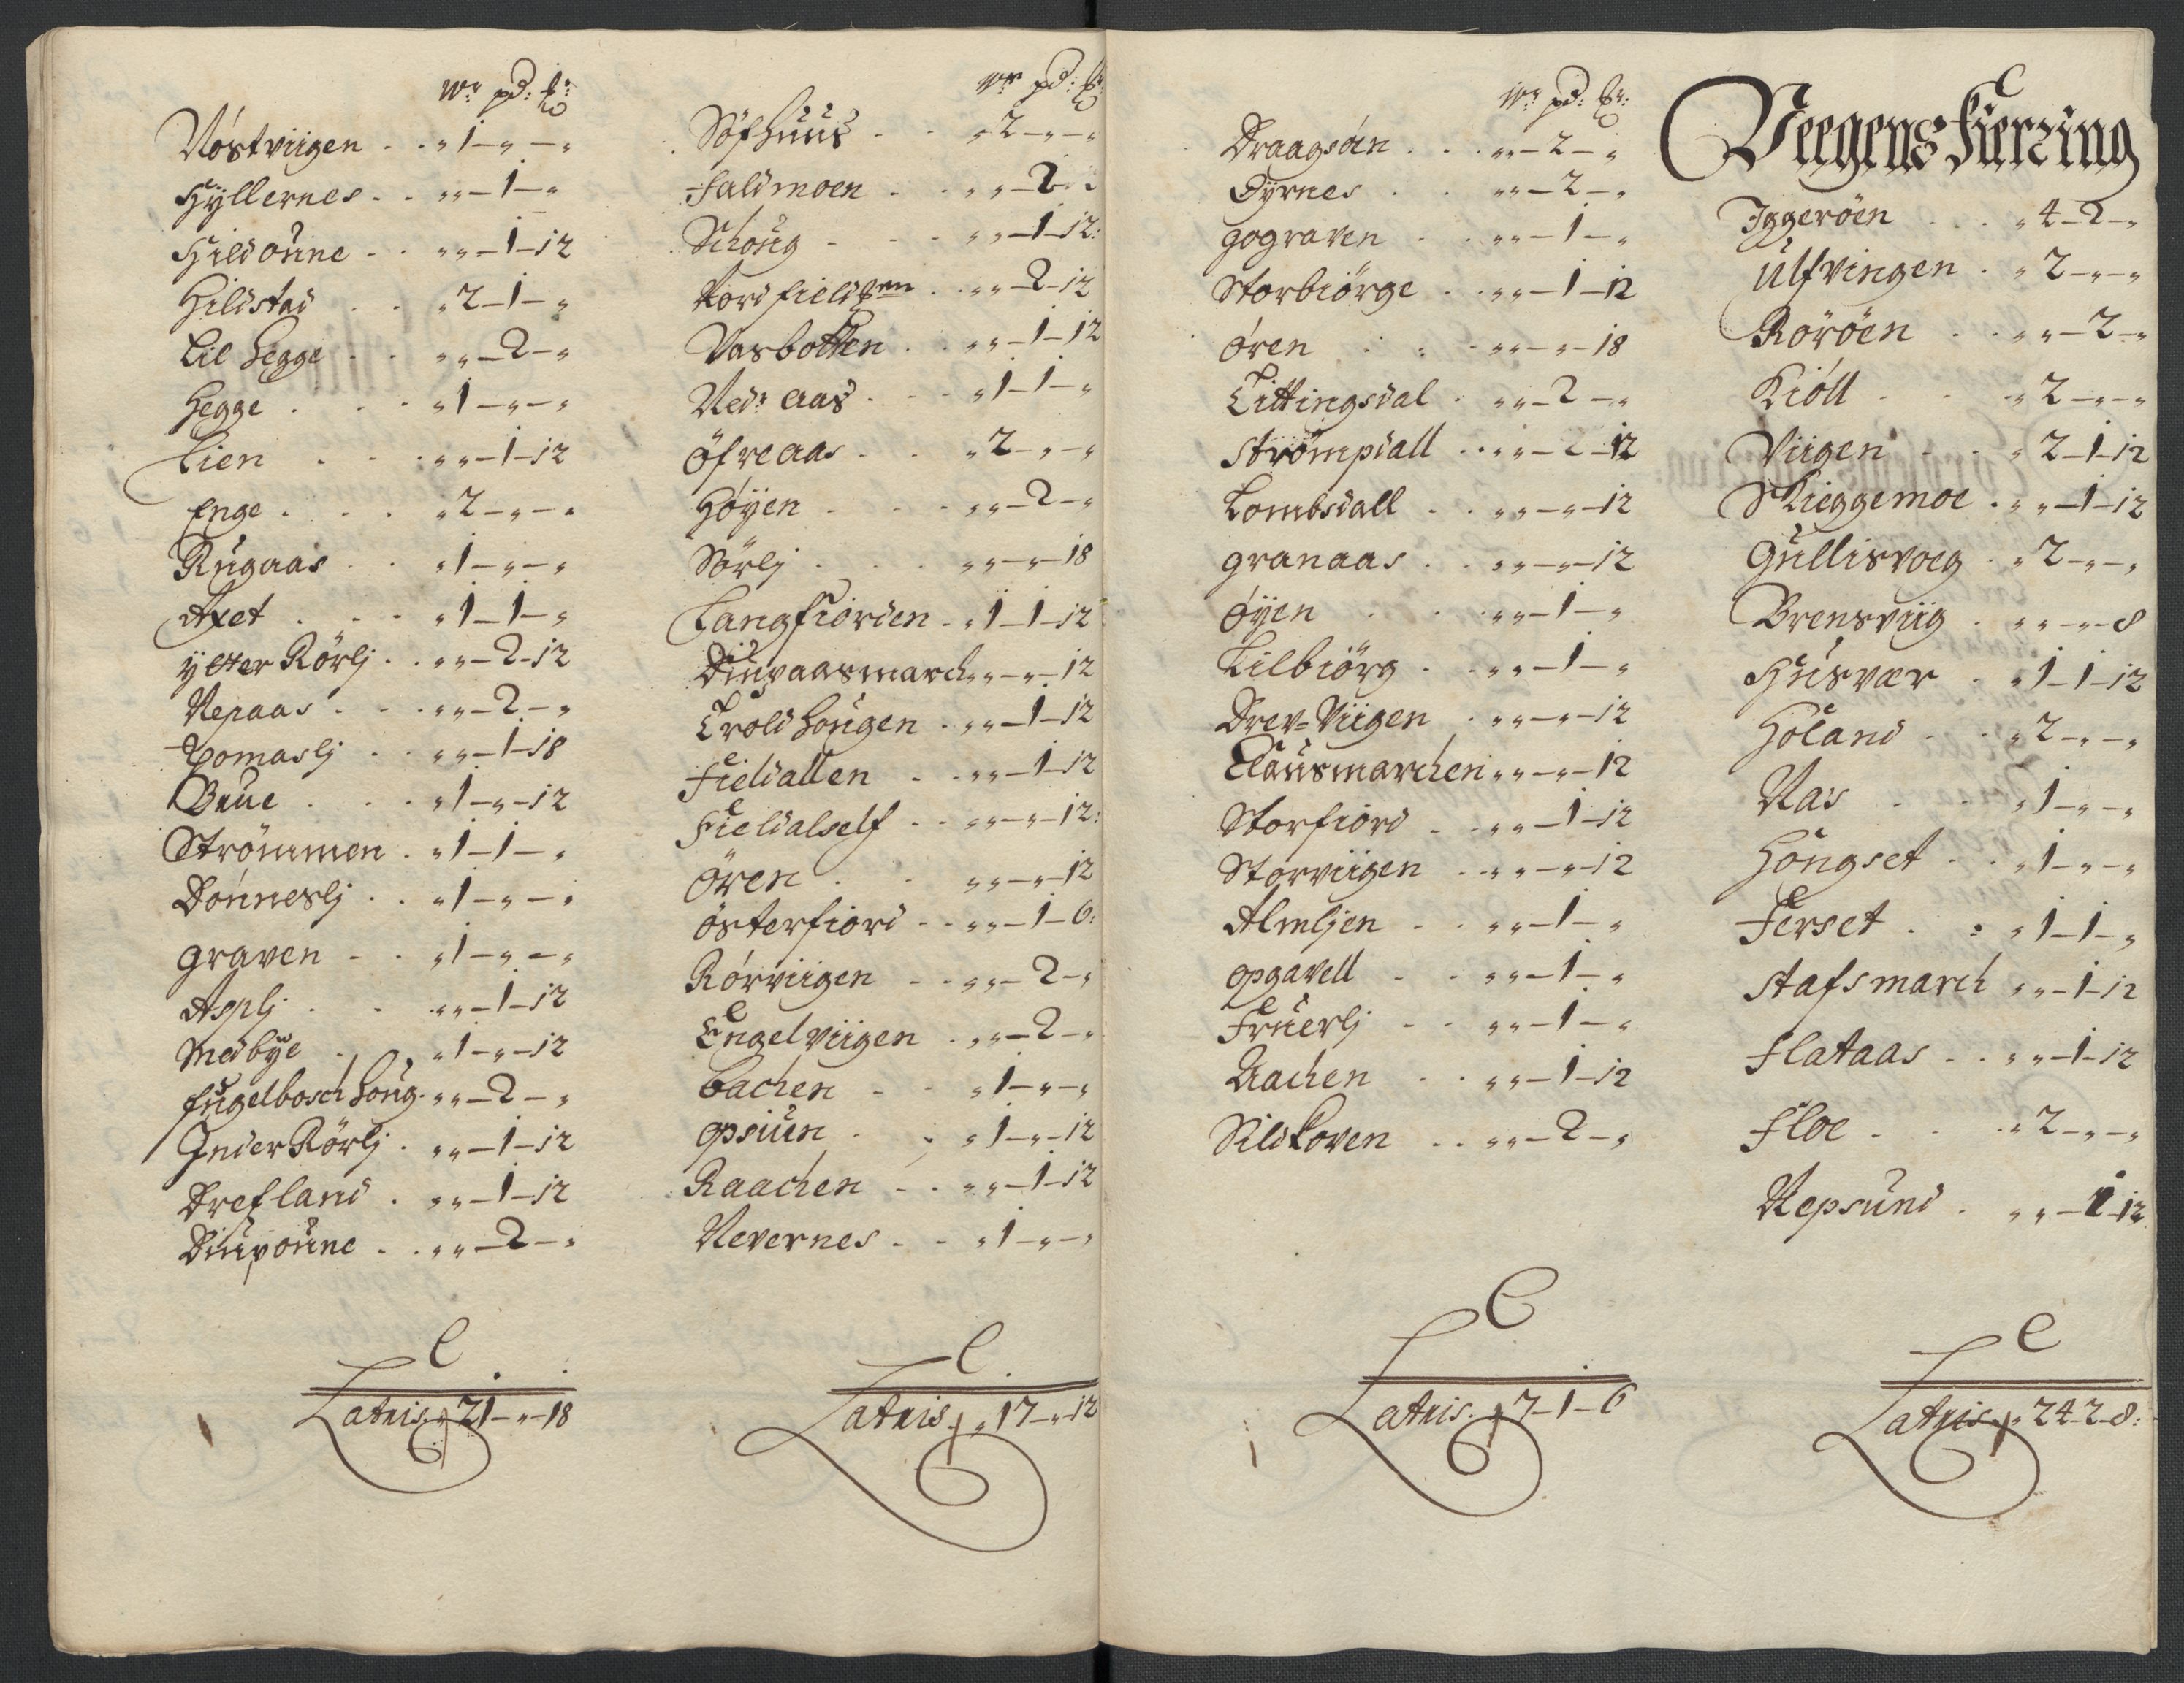 Wr pd: Lr:
Nöstviigen . . „ 1 – „ – „
Hyllernes . . „ „ – 1 – „
Hildoune . . „ „ – 1 – 12
Hildstad . . „ 2 – 1 – „
Lil Hegge . . „ „ – 2 – „
Hegge . . . „ 1 – „ – „
Lien . . . „ „ – 1 – 12
Enge . . . „ 2 – „ – „
Rugaas . . „ 1 – „ – „
Axet . . . „ 1 – 1 – „
Ytter Rörlj . . „ „ – 2 – 12
Nepaas . . . „ „ – 2 – „
Tomaslj . . „ „ – 1 – 18
Bȣue . . . „ 1 – „ – 12
Strömmen . „ 1 – 1 – „
Dönneslj . . „ 1 – „ – „
Graven . . „ 1 – „ – „
Asplj . . „ „ – 1 – 12
Medbye . „ 1 – „ – 12
Fugelbosch houg . „ „ – 2 – „
Inder Rörlj . „ „ – 1 – 12
Drefland . „ „ – 1 – 12
Diupoune . . „ „ – 2 – „
Latris „ 21 – „ – 18
Wr pd: Lr:
Söfhuus . . „ 2 – „ – „
Faldmoen . . „ „ – 2 – „
Schoug . . . „ „ – 1 – 12:
Nordfield . . „ „ – 2 – 12
Vasbotten . „ „ – 1 – 12
Ned: Aas . . „ 1 – 1 – „
Öfre Aas . . „ 2 – „ – „
Höyen . . . „ „ – 2 – „
Sörlj . . . „ „ – „ – 18
Langfiorden . „ 1 – 1 – 12
Diupaasmarch „ „ – „ – 12
Troldhougen . „ „ – 1 – 12
Fieldallen . . „ „ – 1 – 12
Fieldalself . . „ „ – „ – 12:
Ören . . „ „ – „ – 12
Österfiord . . „ „ – 1 – 6:
Rörviigen . . „ „ – 2 – „
Engelviigen . „ „ – 2 – „
Bachen . . „ 1 – „ – „
Opsiuen . . „ 1 – „ – 12
Raachen . . „ „ – 1 – 12
Nevernes . . „ 1 – „ – „
Latris „ 17 – „ – 12
Wr pd: Lr:
Draagsön . . . „ „ – 2 – „
Öyrnes . . „ „ – 2 – „
Gograven . . „ „ – 1 – „
Storbiörge . . „ „ – 1 – 12
Ören . . „ „ – „ – 18
Tittingsdal . „ „ – 2 – „
Strömpdall . . „ „ – 2 – 12
Lombsdall . . „ „ – „ – 12
Granaas . . „ „ – „ – 12
Öyen . . „ „ – 1 – „
Lilbiörg . . „ „ – 1 – „
Drev=Viigen . „ „ – „ – 12
Clausmarchen „ „ – „ – 12
Storfiord . . „ „ – 1 – 12
Storviigen . . „ „ – „ – 12
Almljen . . „ „ – 1 – „
Opgavell . . „ „ – 1 – „
Fruerlj . . „ „ – 1 – „
Aachen . . „ „ – 1 – 12
Sildhoven . . „ „ – 2 – „
Latris „ 7 – 1 – 6
Veegens Fierzing
Iggeröen . . „ 4 – 2 – „
Ulfvingen . „ 2 – „ – „
Roröen . . „ „ – 2 – „
Kiöll . . „ 2 – „ – „
Viigen . . „ 2 – 1 – 12
Skieggemoe . „ „ – 1 – 12
Gullisvoeg . „ 2 – „ – „
Brensviig . „ „ – „ – 8
Husvær . „ 1 – 1 – 12
Höland . . „ 2 – „ – „
Nas . . „ 1 – „ – „
Höngset . . „ 1 – „ – „
Ferset . . „ 1 – 1 – „
Stafsmarch „ „ – 1 – 12
Flataas . . „ „ – 1 – 12
Floe . . „ 2 – „ – „
Repsund . „ „ – 1 – 12
Latris „ 24 – 2 – 8: